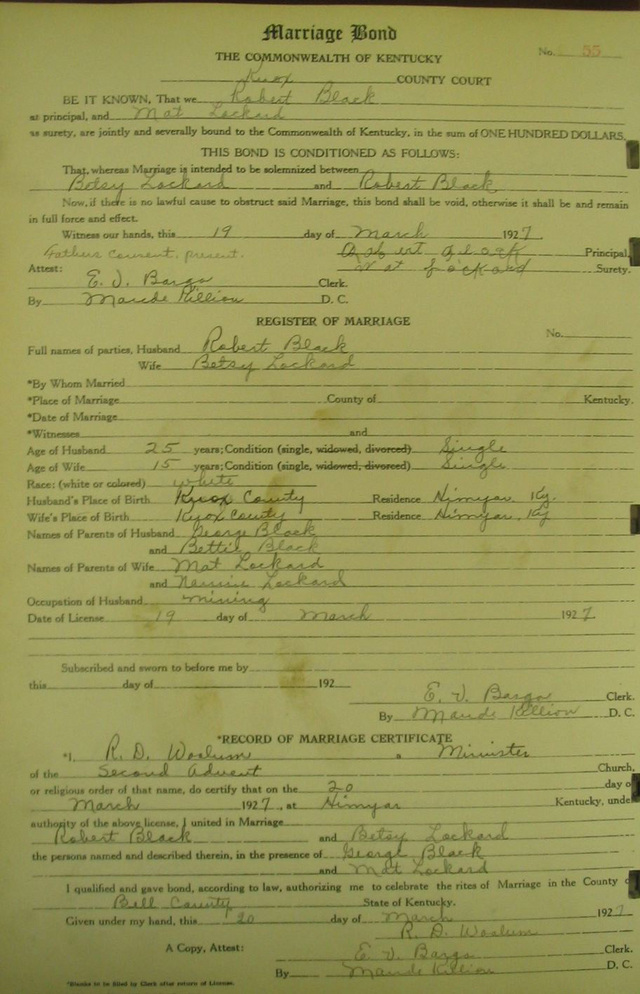 Marriage Bond
No. 55
THE COMMONWEALTH OF KENTUCKY
Knox COUNTY COURT
BE IT KNOWN, That we Robert Black
as principal, and Mat Lockard
as surety, are jointly and severally bound to the Commonwealth of Kentucky, in the sum of ONE HUNDRED DOLLARS.
THIS BOND IS CONDITIONED AS FOLLOWS:
That, whereas Marriage is intended to be solemnized between
Betsy Lockard and Robert Black
Now, if there is no lawful cause to obstruct said Marriage, this bond shall be void, otherwise it shall be and remain
in full force and effect.
Witness our hands, this 19 day of March 1927
Fathers consent, present. Principal,
Attest: Mat Lockard Surety.
E. V. Bargo Clerk.
By Maude Killion D. C.
REGISTER OF MARRIAGE
No.
Full names of parties, Husband Robert Black
Wife Betsy Lockard
*By Whom Married
*Place of Marriage County of Kentucky.
*Date of Marriage
*Witnesses and
Age of Husband 25 years; Condition (single, widowed, divorced) Single
Age of Wife 15 years; Condition (single, widowed, divorced) Single
Race: (white or colored) white
Husband's Place of Birth Knox County Residence Himyar, Ky.
Wife's Place of Birth Knox County Residence Himyar, Ky
Names of Parents of Husband George Black
and Bettie Black
Names of Parents of Wife Mat Lockard
and Nannie Lockard
Occupation of Husband mining
Date of License 19 day of March 1927
Subscribed and sworn to before me by
this day of 192
E. V. Bargo Clerk.
By Maude Killion D. C.
*RECORD OF MARRIAGE CERTIFICATE
*I, R. D. Woolum a Minister
of the Second Advent Church,
or religious order of that name, do certify that on the 20 day of
March 1927, at Himyar Kentucky, under
authority of the above license, I united in Marriage
Robert Black and Betsy Lockard
the persons named and described therein, in the presence of George Black
and Mat Lockard
I qualified and gave bond, according to law, authorizing me to celebrate the rites of Marriage in the County of
Bell County State of Kentucky.
Given under my hand, this 20 day of March 1927
R. D. Woolum
A Copy, Attest: E. V. Bargo Clerk.
By Maude Killion D. C.
*Blanks to be filled by Clerk after return of License.